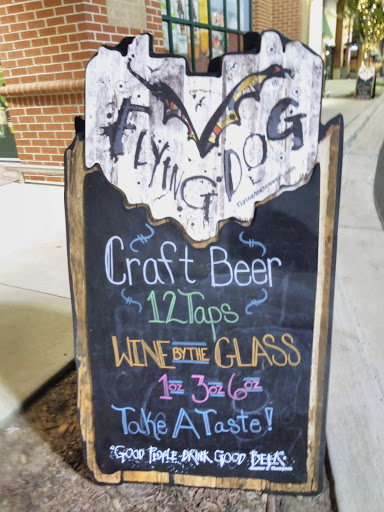 FLYING DOG
Craft Beer
12 Taps
WINE BY THE GLASS
1oz 3oz 6oz
Take A Taste!
"GOOD PEOPLE DRINK GOOD BEER"